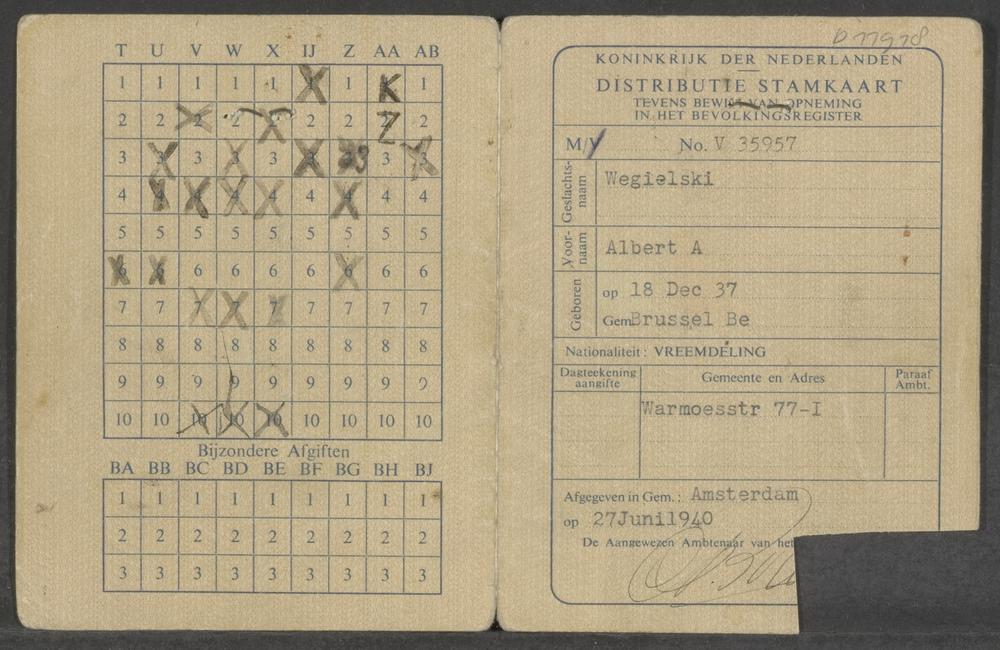 T U V W X IJ Z AA AB
1 1 1 1 1 1 1 K 1
2 2 2 2 2 2 2 Z 2
3 3 3 3 3 3 3 3 3
4 4 4 4 4 4 4 4 4
5 5 5 5 5 5 5 5 5
6 6 6 6 6 6 6 6 6
7 7 7 7 7 7 7 7 7
8 8 8 8 8 8 8 8 8
9 9 9 9 9 9 9 9 9
10 10 10 10 10 10 10 10 10
Bijzondere Afgiften
BA BB BC BD BE BF BG BH BJ
1 1 1 1 1 1 1 1 1
2 2 2 2 2 2 2 2 2
3 3 3 3 3 3 3 3 3
KONINKRIJK DER NEDERLANDEN
DISTRIBUTIE STAMKAART
TEVENS BEWIJS VAN OPNEMING
IN HET BEVOLKINGSREGISTER
M/V No. V 35957
Geslachts-
naam
Wegielski
Voor-
naam
Albert A
Geboren
op 18 Dec 37
Gem Brussel Be
Nationaliteit: VREEMDELING
Dagteekening
aangifte
Gemeente en Adres
Paraaf
Ambt.
Warmoesstr 77-I
Afgegeven in Gem.: Amsterdam
op 27Juni1940
De Aangewezen Ambtenaar van het